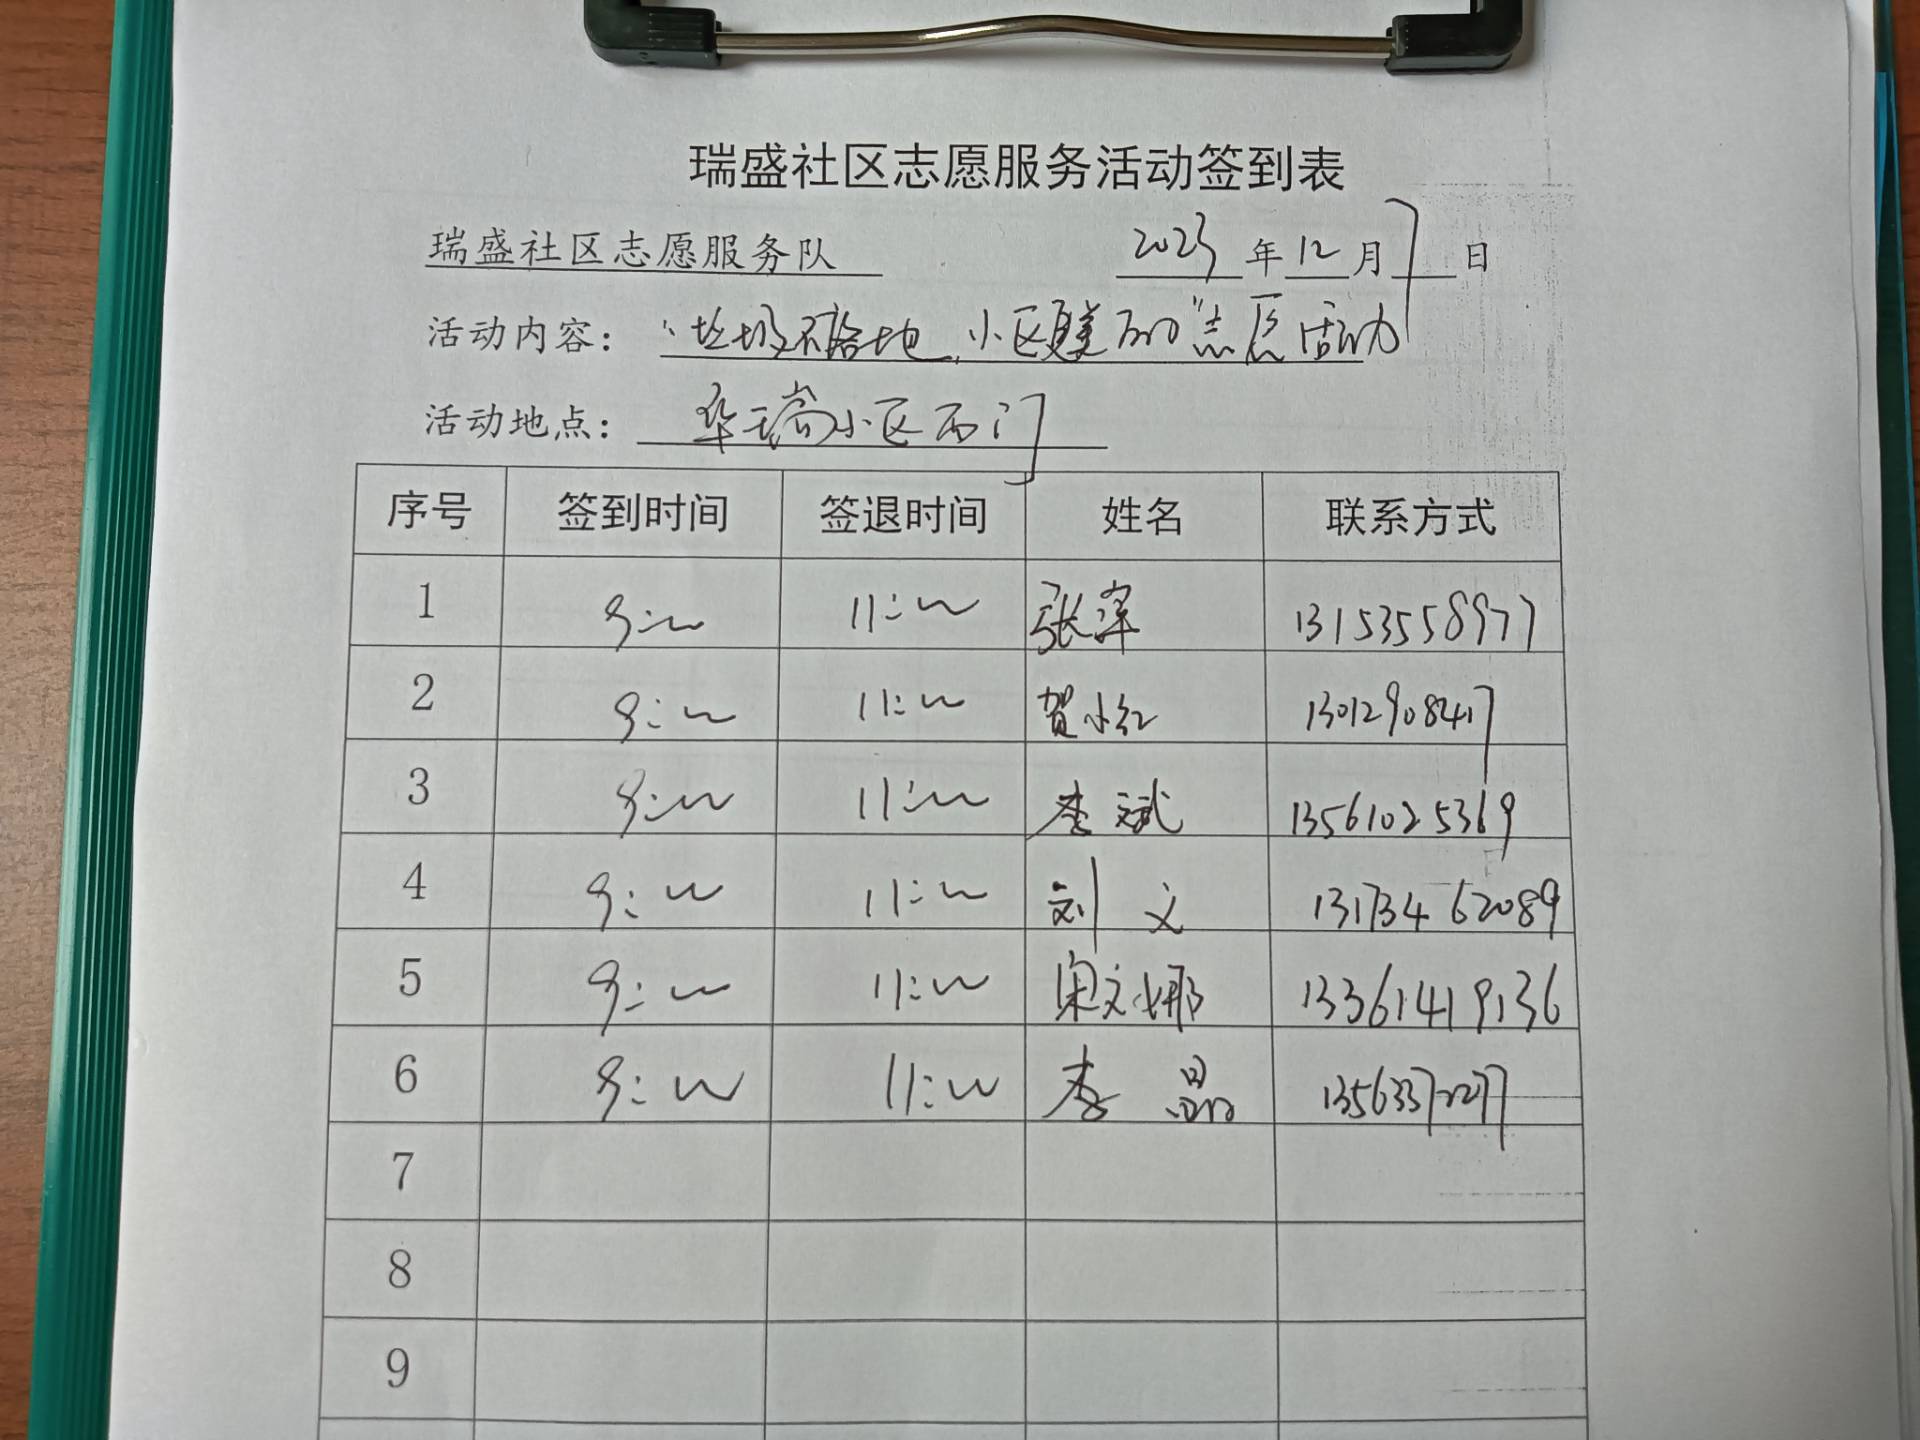 瑞盛社区志愿服务活动签到表
瑞盛社区志愿服务队 2023 年 12 月 7 日
活动内容： "垃圾不落地，小区更美丽"志愿活动
活动地点： 华瑞小区西门
序号 签到时间 签退时间 姓名 联系方式
1 9:00 11:00 张 13153558977
2 9:00 11:00 贺小红 13012908417
3 9:00 11:00 李斌 13561025369
4 9:00 11:00 刘文 13173462089
5 9:00 11:00 宋文娜 13361419136
6 9:00 11:00 李晶 13563372277
7
8
9